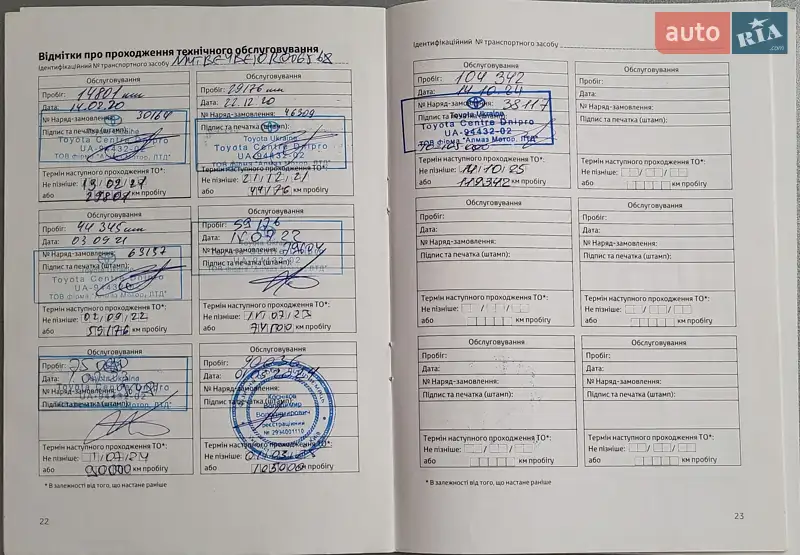 Відмітки про проходження технічного обслуговування
Ідентифікаційний № транспортного засобу
Обслуговування
Пробіг: 14801 км
Дата: 14.02.20
№ Наряд-замовлення: 30164
Підпис та печатка (штамп):
Toyota Centre Dnipro
UA-94432-02
ТОВ фірма "Алмаз Мотор, ЛТД"
Термін наступного проходження ТО*:
Не пізніше: 13/02/21
або 29801 км пробігу
Обслуговування
Пробіг: 29176 км
Дата: 22.12.20
№ Наряд-замовлення: 46509
Підпис та печатка (штамп):
Toyota Ukraine
Toyota Centre Dnipro
UA-94432-02
ТОВ фірма "Алмаз Мотор, ЛТД"
Термін наступного проходження ТО*:
Не пізніше: 21/12/21
або 44176 км пробігу
Обслуговування
Пробіг: 44345 км
Дата: 03 09 21
№ Наряд-замовлення: 63137
Підпис та печатка (штамп):
Toyota Centre Dnipro
UA-94432-02
ТОВ фірма "Алмаз Мотор, ЛТД"
Термін наступного проходження ТО*:
Не пізніше: 02/09/22
або 59176 км пробігу
Обслуговування
Пробіг: 59176
Дата:
№ Наряд-замовлення:
Підпис та печатка (штамп):
Термін наступного проходження ТО*:
Не пізніше: 11/07/23
або 74000 км пробігу
Обслуговування
Пробіг:
Дата:
Toyota Ukraine
№ Наряд-замовлення:
Toyota Centre Dnipro
UA-94432-02
Підпис та печатка (штамп):
Термін наступного проходження ТО*:
Не пізніше: /07/24
або 90000 км пробігу
Обслуговування
Пробіг: 90036
Дата:
№ Наряд-замовлення:
Підпис та печатка (штамп):
Володимирович
Термін наступного проходження ТО*:
Не пізніше:
або 105000 км пробігу
* В залежності від того, що настане раніше
22
Ідентифікаційний № транспортного засобу
Обслуговування
Пробіг: 104 342
Дата: 14.10.24
№ Наряд-замовлення: 38117
Підпис та печатка (штамп):
Toyota Ukraine
Toyota Centre Dnipro
UA-94432-02
ТОВ фірма "Алмаз Мотор, ЛТД"
Термін наступного проходження ТО*:
Не пізніше: 14/10/25
або 119342 км пробігу
Обслуговування
Пробіг:
Дата:
№ Наряд-замовлення:
Підпис та печатка (штамп):
Термін наступного проходження ТО*:
Не пізніше:
або км пробігу
Обслуговування
Пробіг:
Дата:
№ Наряд-замовлення:
Підпис та печатка (штамп):
Термін наступного проходження ТО*:
Не пізніше:
або км пробігу
Обслуговування
Пробіг:
Дата:
№ Наряд-замовлення:
Підпис та печатка (штамп):
Термін наступного проходження ТО*:
Не пізніше:
або км пробігу
Обслуговування
Пробіг:
Дата:
№ Наряд-замовлення:
Підпис та печатка (штамп):
Термін наступного проходження ТО*:
Не пізніше:
або км пробігу
Обслуговування
Пробіг:
Дата:
№ Наряд-замовлення:
Підпис та печатка (штамп):
Термін наступного проходження ТО*:
Не пізніше:
або км пробігу
* В залежності від того, що настане раніше
23
auto RIA .com